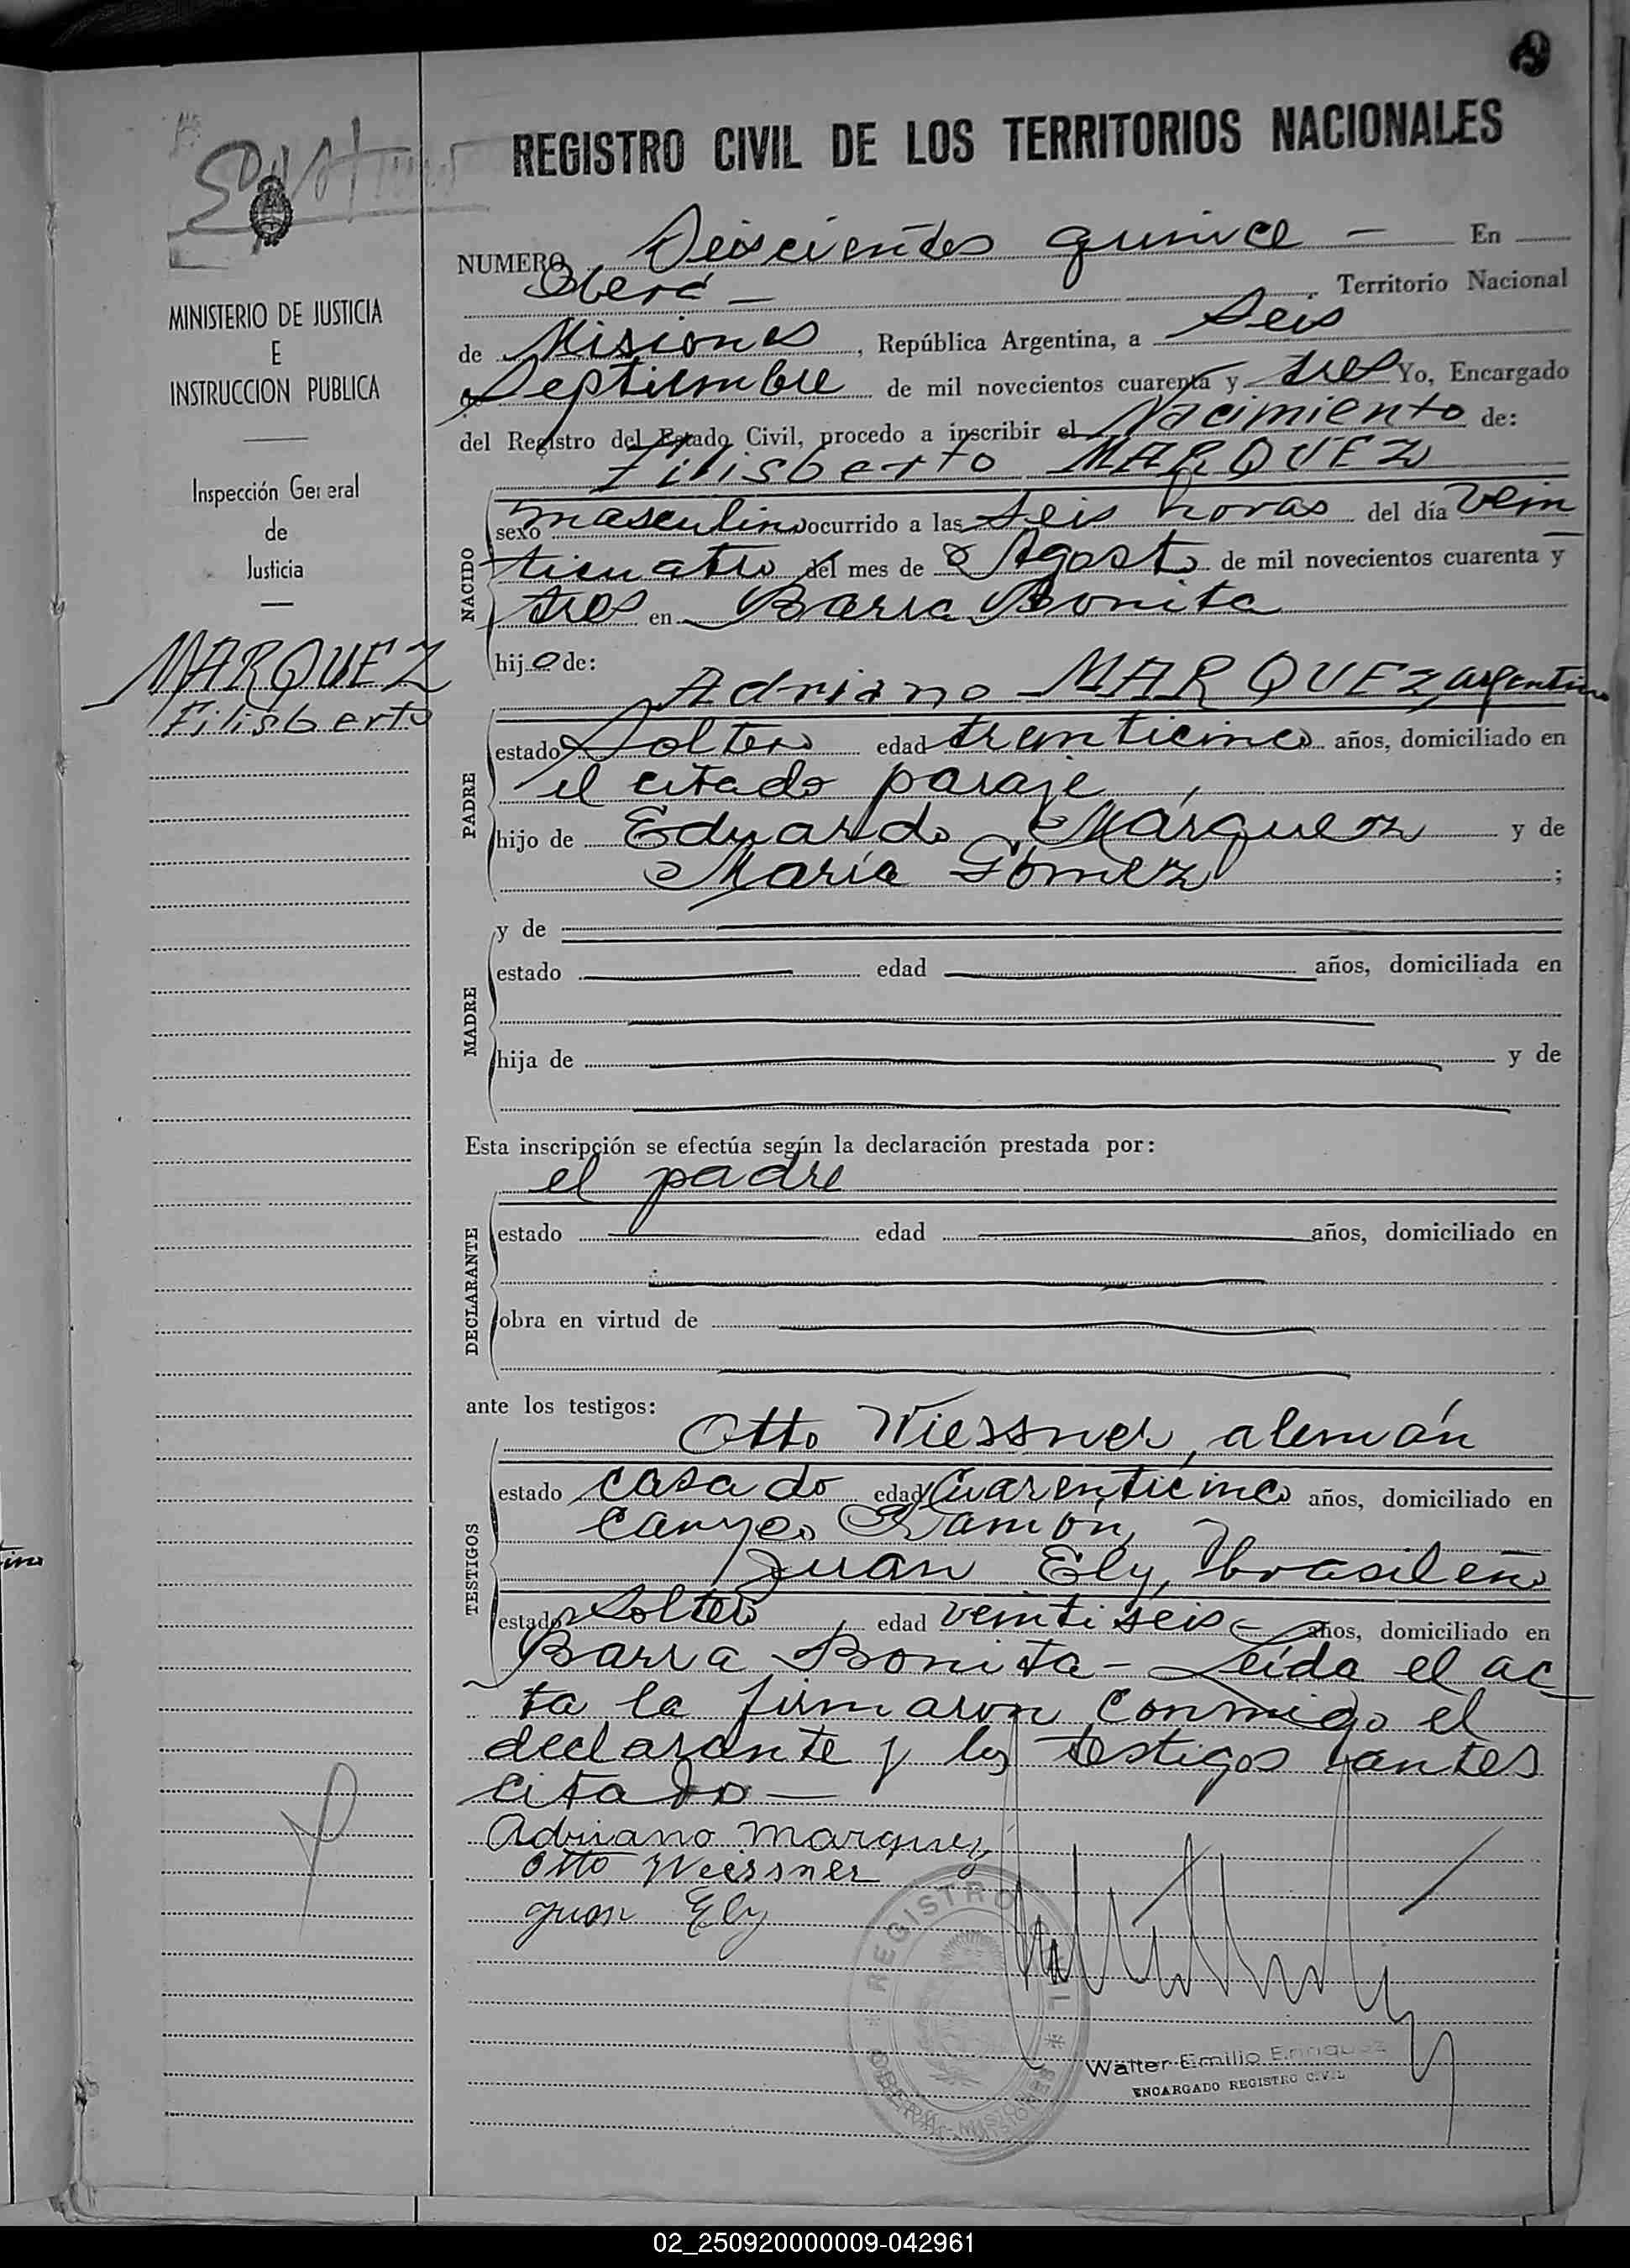 REGISTRO CIVIL DE LOS TERRITORIOS NACIONALES
MINISTERIO DE JUSTICIA
E
INSTRUCCION PUBLICA
Inspección General
de
Justicia
MARQUEZ
Filisberto
NUMERO Seiscientos quince — En
Oberá — Territorio Nacional
de Misiones, República Argentina, a Seis
de Septiembre de mil novecientos cuarenta y tres Yo, Encargado
del Registro del Estado Civil, procedo a inscribir el Nacimiento de:
Filisberto MARQUEZ
NACIDO
sexo masculino ocurrido a las seis horas del día vein
ticuatro del mes de Agosto de mil novecientos cuarenta y
tres en Barra Bonita
hijo de:
Adriano MARQUEZ, argentino
PADRE
estado Soltero edad treinticinco años, domiciliado en
el citado paraje,
hijo de Eduardo Márquez y de
María Gómez ;
MADRE
y de
estado edad años, domiciliada en
hija de y de
Esta inscripción se efectúa según la declaración prestada por:
el padre
DECLARANTE
estado edad años, domiciliado en
obra en virtud de
ante los testigos:
Otto Wiessner, alemán
TESTIGOS
estado casado edad cuarenticinco años, domiciliado en
Ramón,
Juan Ely, brasileño
estado soltero, edad veintiseis — años, domiciliado en
Barra Bonita — Leída el ac-
ta la firmaron conmigo el
declarante y los testigos antes
citado —
Adriano Marquez
Otto Weissner
Juan Ely
REGISTRO CIVIL
OBERÁ - MISIONES
Walter Emilio Enriquez
ENCARGADO REGISTRO CIVIL
02_250920000009-042961